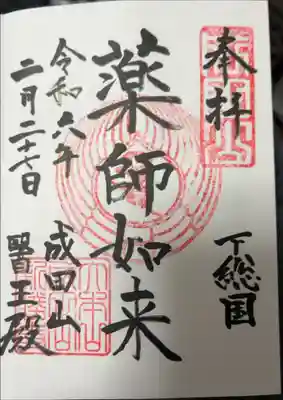 奉拝
下総国
薬師如来
成田山
醫王殿
令和六年
二月二十七日